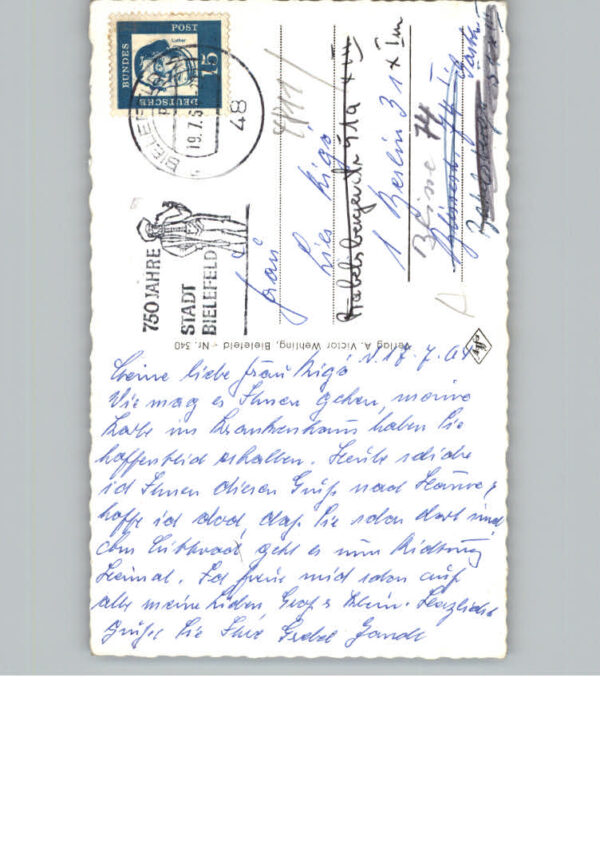 BUNDES
POST
DEUTSCHE
Luther
15
BIELEFELD
19.7.6
48
750 JAHRE
STADT
BIELEFELD
Frau
Lies Rigó
1 Berlin 31
74
Verlag A. Victor Wehling, Bielefeld - Nr. 340
Agfa
Meine liebe Frau Rigó 17.7.64
Wie mag es Ihnen gehen, meine
Karte ins Krankenhaus haben Sie
hoffentlich erhalten. Heute schicke
ich Ihnen diesen Gruß nach Hause,
hoffe ich doch, daß Sie schon dort sind
geht es nun Richtung
Heimat. Ich freue mich schon auf
alle meine Lieben Groß & Klein. Herzlichst
grüßt Sie Ihre Gretel